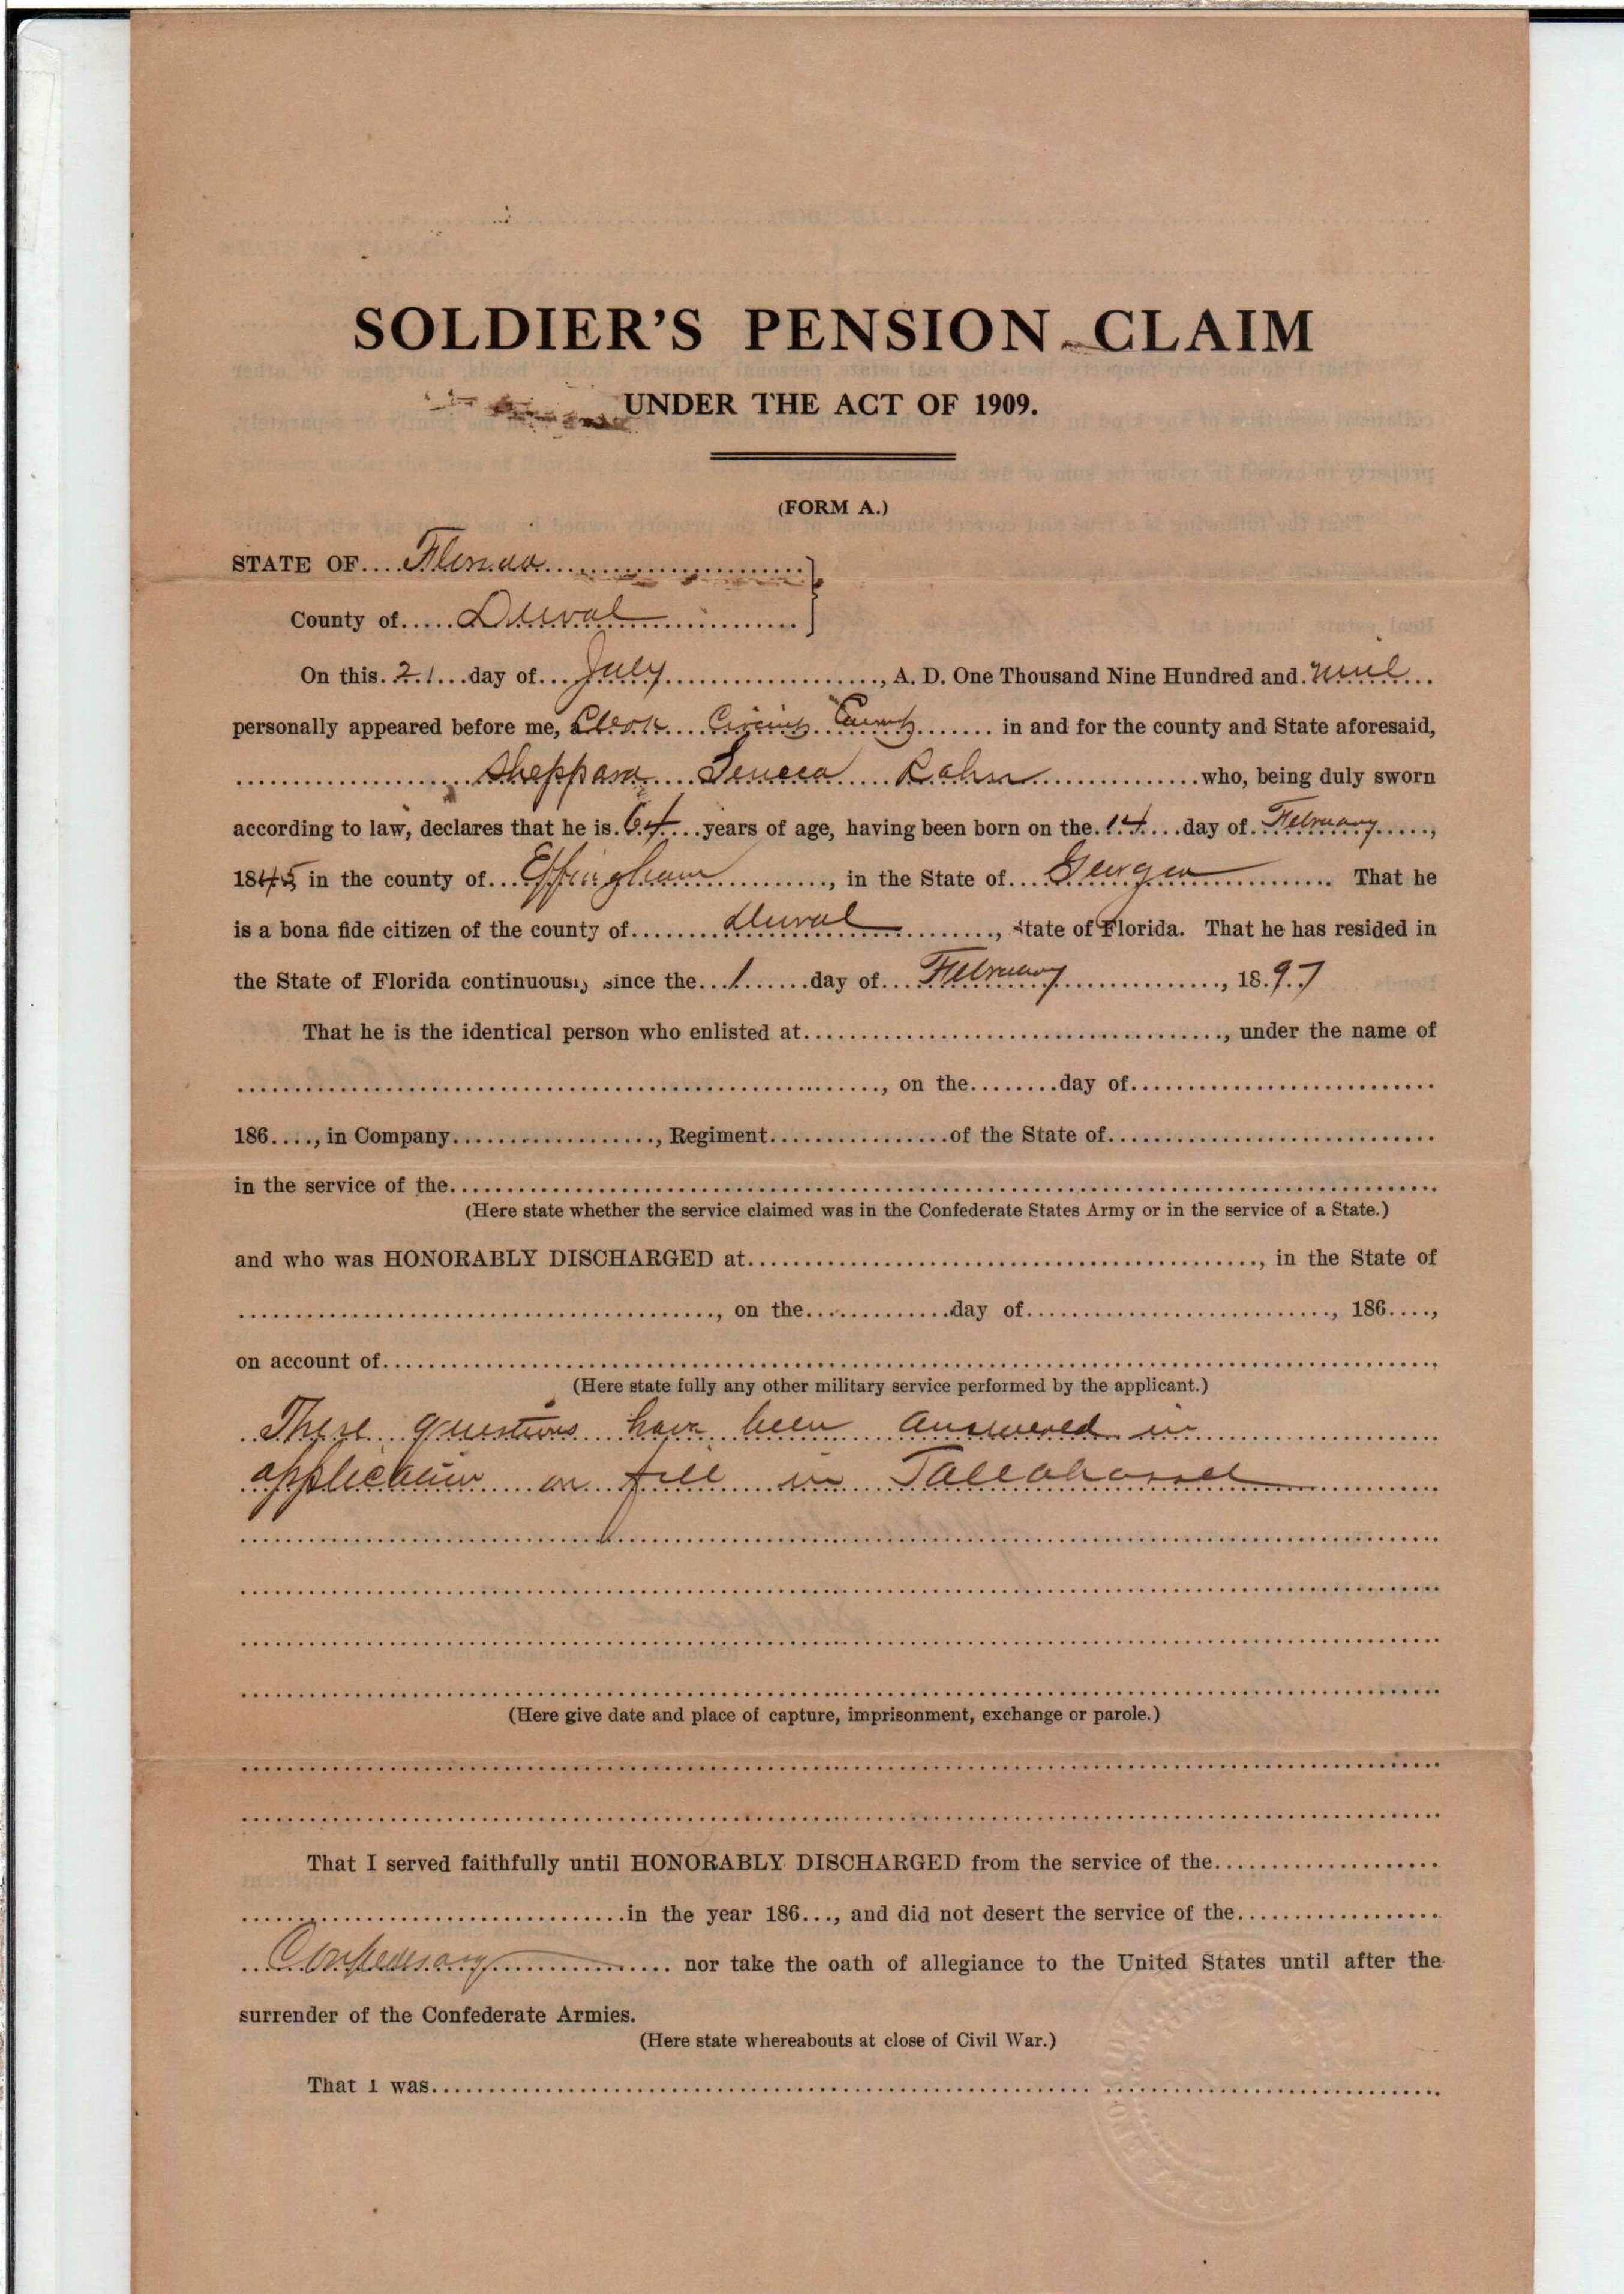 SOLDIER'S PENSION CLAIM
UNDER THE ACT OF 1909.
(FORM A.)
STATE OF....Florida....................
County of.....Duval................
On this.21...day of...July..................., A. D. One Thousand Nine Hundred and.nine...
personally appeared before me, Clerk Circuit Court....... in and for the county and State aforesaid,
................Sheppard Seneca Rahn..............who, being duly sworn
according to law, declares that he is.64...years of age, having been born on the.14...day of.February.....,
1845 in the county of...Effingham.........., in the State of...Georgia............ That he
is a bona fide citizen of the county of.......Duval.........., State of Florida. That he has resided in
the State of Florida continuously since the...1......day of...February.............., 18.97
That he is the identical person who enlisted at...................................., under the name of
........................................................, on the........day of...........................
186...., in Company.................., Regiment................of the State of.............................
in the service of the.......................................................................................
(Here state whether the service claimed was in the Confederate States Army or in the service of a State.)
and who was HONORABLY DISCHARGED at............................................., in the State of
.........................................., on the.............day of..........................., 186....,
on account of.............................................................................................
(Here state fully any other military service performed by the applicant.)
These questions have been answered in
application on file in Tallahassee
(Here give date and place of capture, imprisonment, exchange or parole.)
That I served faithfully until HONORABLY DISCHARGED from the service of the....................
..................................in the year 186..., and did not desert the service of the..................
Confederacy............... nor take the oath of allegiance to the United States until after the
surrender of the Confederate Armies.
(Here state whereabouts at close of Civil War.)
That I was.........................................................................................